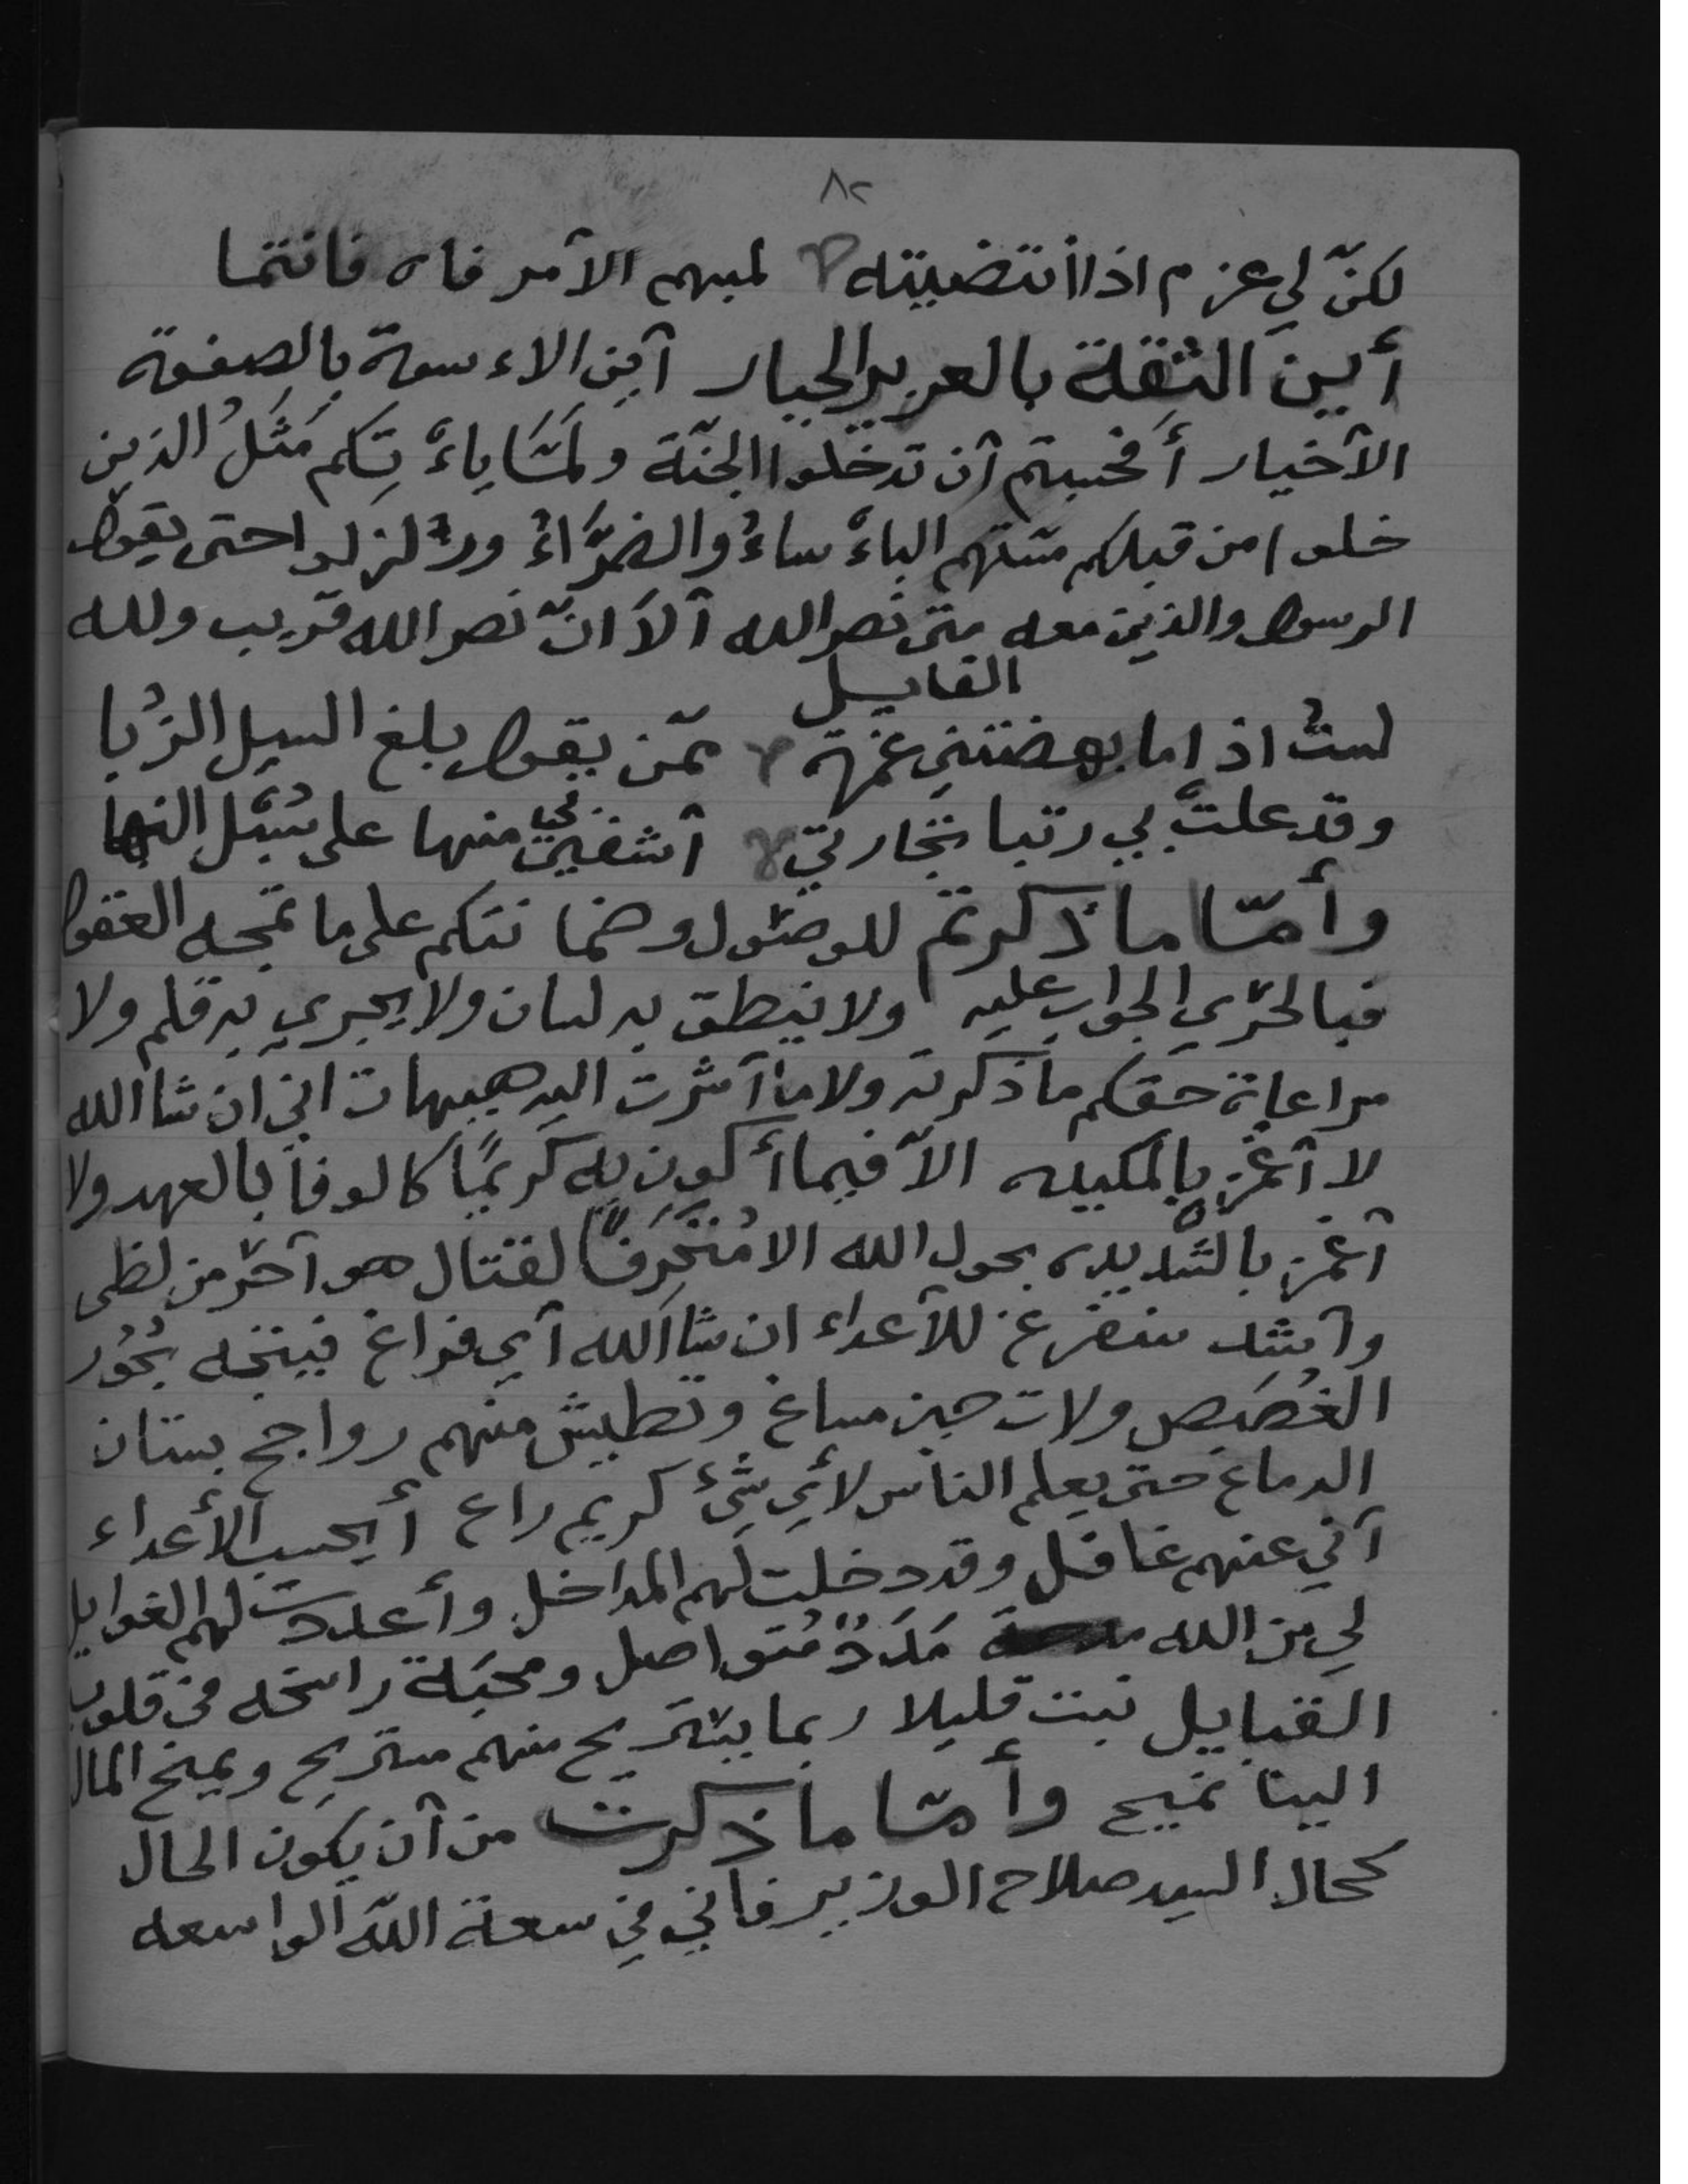 ٨٢
لكنّ لي عزم اذا انتضيته لمبهم الآمر فاه فانتما
أين الثقة بالعزيز الجبار آين الاءسوة بالصفوة
الآخيار أفحسبتم آن تدخلوا الجنّة ولمّا ياءْتكم مَثَلُ الذين
خلوا من قبلكم مسّتهم الباءْساءُ والضرَّاءُ وزلزلوا حتى يقول
الرسول والذين معه متى نصر الله آلآ انّ نصر الله قريب ولله
القايل
لستُ اذا ما بهضتني غمّة ممّن يقول بلغ السيل الزُبا
وقد علتْ بي رتبا تجاربتي آشفين بي منها على سُبُل النها
وأمّا ما ذكرتم للوصول وضمانتكم على ما تمجه العقول
فبالحرّي الجواب عليه ولا ينطق به لسان ولا يجري به قلم ولا
مراعاة حقكم ما ذكرته ولا ما آشرت اليه هيهات اني ان شا الله
لا آغمز بالمكيله الآ فيما أكون به كريمًا كالوفاً بالعهد ولا
آغمز بالشديده بحول الله الا مُتَحَرِفًا لقتال هو آحرّ من لظى
وآشد سنفرغ للآعداء ان شا الله آي فراغ فينتجه بُحُور
الغُصَص ولات حين مساغ وتطيش منهم رواجح بستان
الدماغ حتى يعلم الناس لأي شيْء كريم راع أيحسب الأعداء
آني عنهم غافل وقد دخلت لهم المداخل وأعددت لهم الغوايل
لي من الله مَدَدٌ مُتواصل ومحبّة راسخه في قلوب
القبايل نبت قليلا ربما يستريح منهم مستريح ويميح المال
الينا مميح وأمّا ما ذكرت من آن يكون الحال
كحال السيد صلاح الوزير فاني في سعة اللّه الواسعه